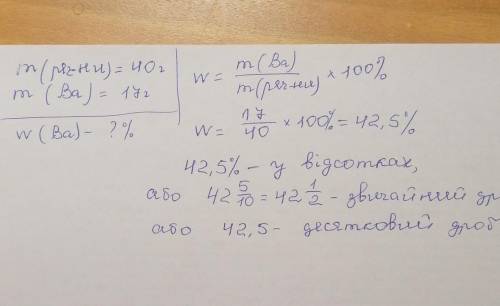 m(реч-ни) = 40г
m (Ba) = 17г
w (Ba) - ?%
w = m(Ba) / m(реч-ни) × 100%
w = 17/40 × 100% = 42,5%
42,5% - у відсотках,
або 42 5/10 = 42 1/2 - звичайний др
або 42,5 - десятковий дроб